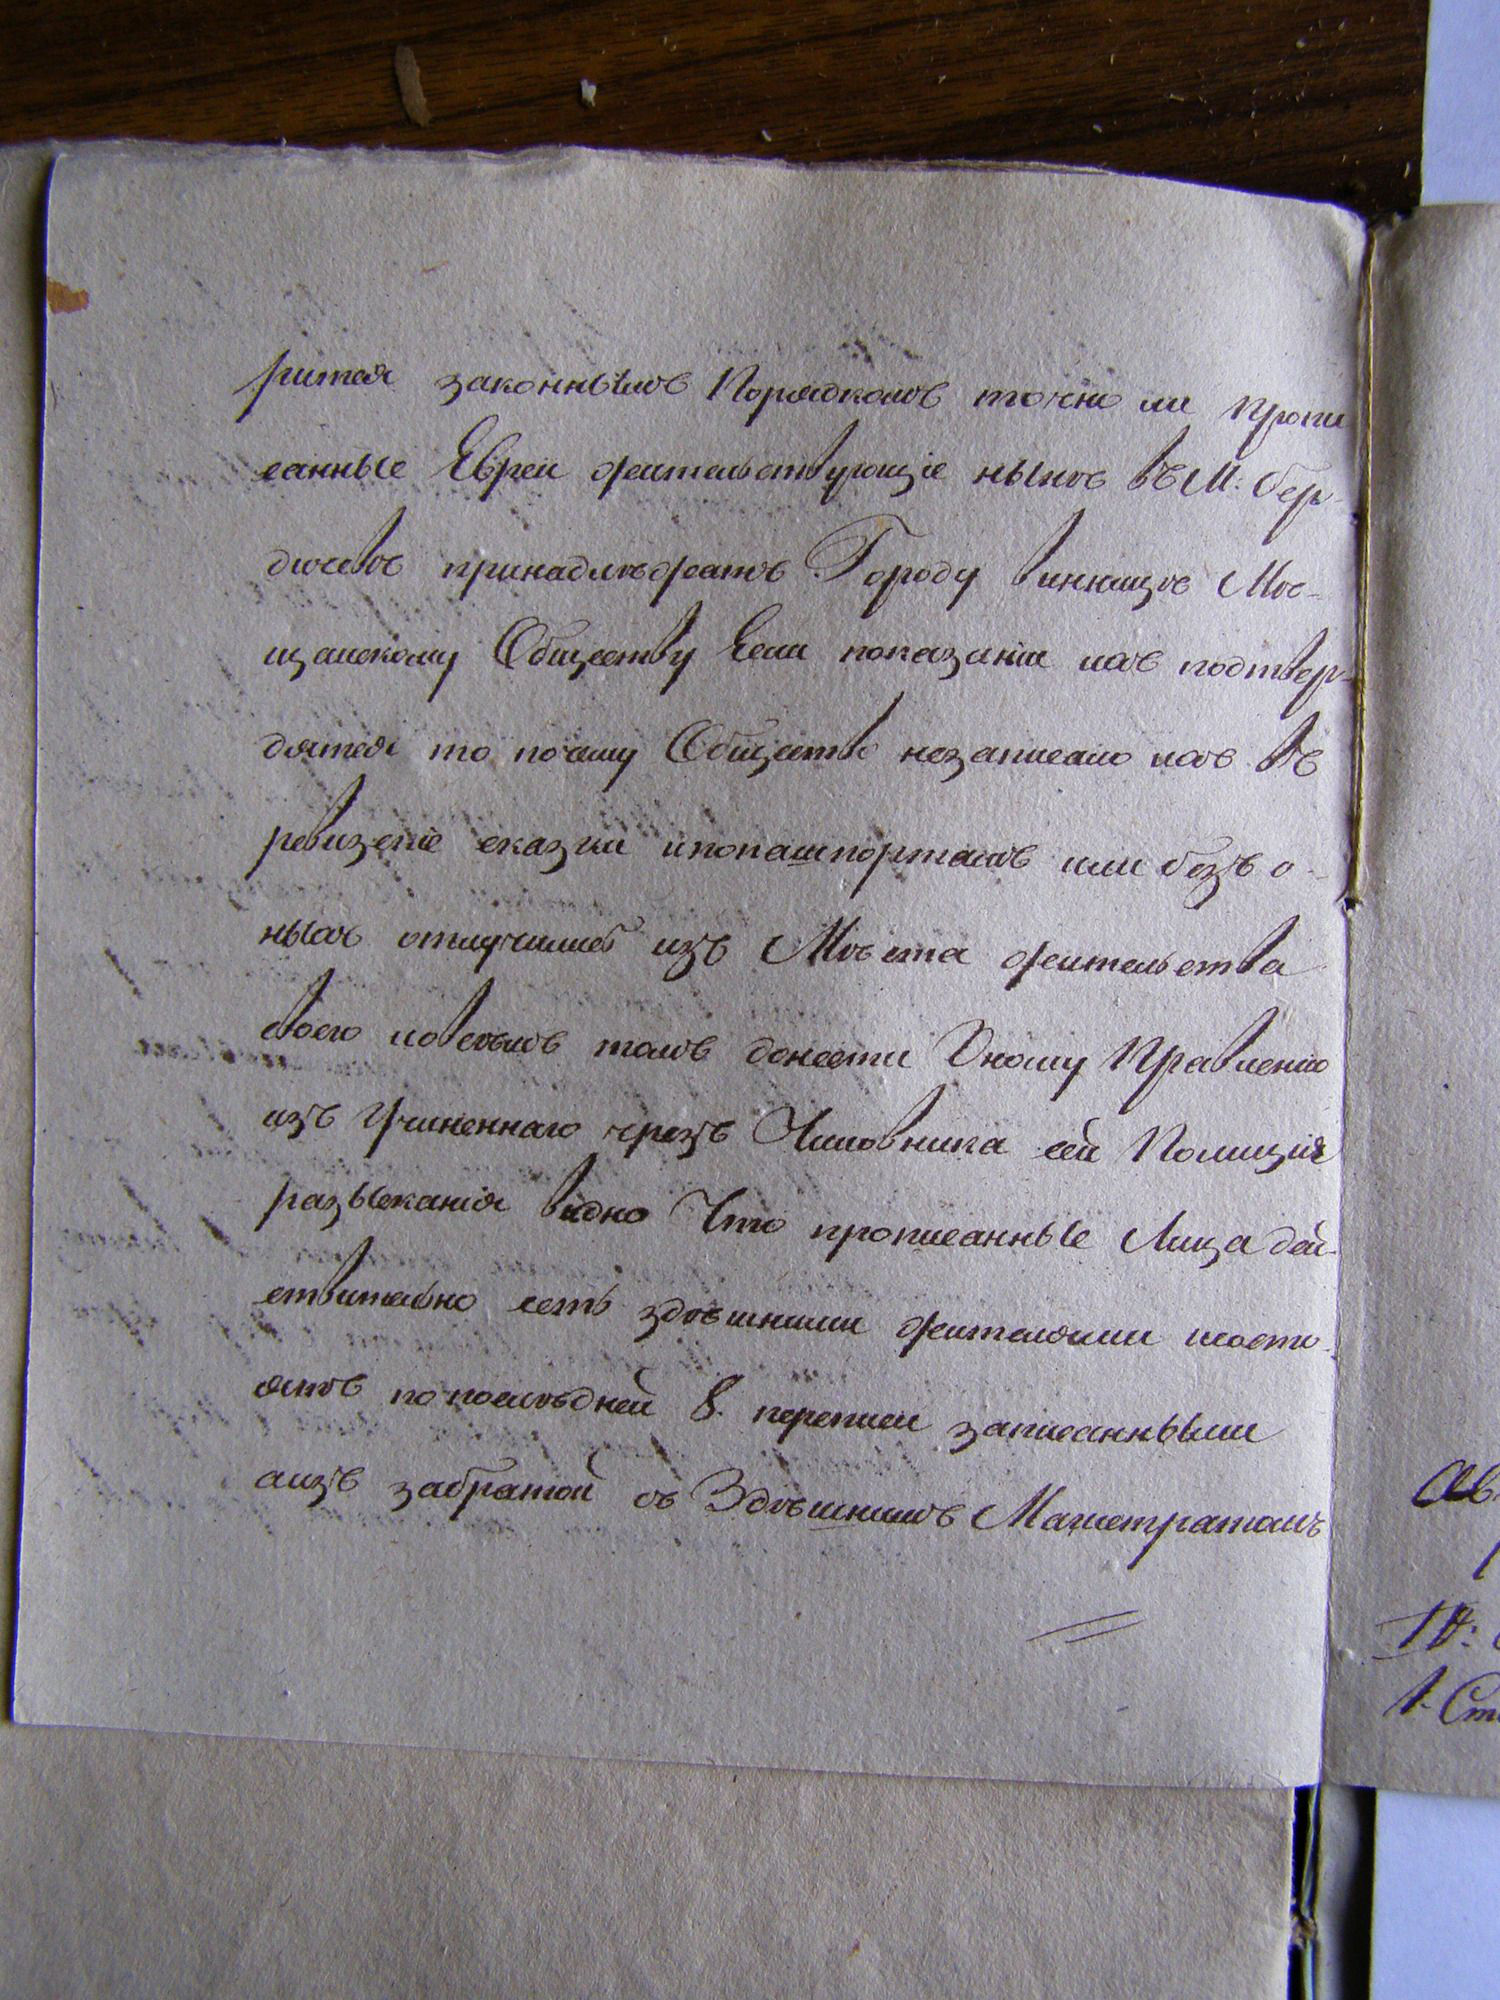 ритея законнымъ Порядкомъ точно ли пропи
санные Евреи жительствующіе нынѣ въ М: бер-
дичевѣ принадлѣжатъ Городу винницѣ Мѣ-
щанскому Обществу Если показаніи ихъ подтвер-
дятся то почему Общество незаписало ихъ въ
ревизские сказки и попашпортамъ или безъ о-
ныхъ отлучились изъ Мѣста жительства
своего и овсемъ томъ донести Оному Правлению
изъ Учиненнаго чрезъ Чиновника сей Полиціи
разысканія видно Что прописанные Лица дей-
ствительно есть здѣшними жителями и состо-
ятъ по послѣдней 8. переписи записанными
аизъ забратой съ Здѣшнимъ Магистратомъ
Ав
IV:
1. Ст